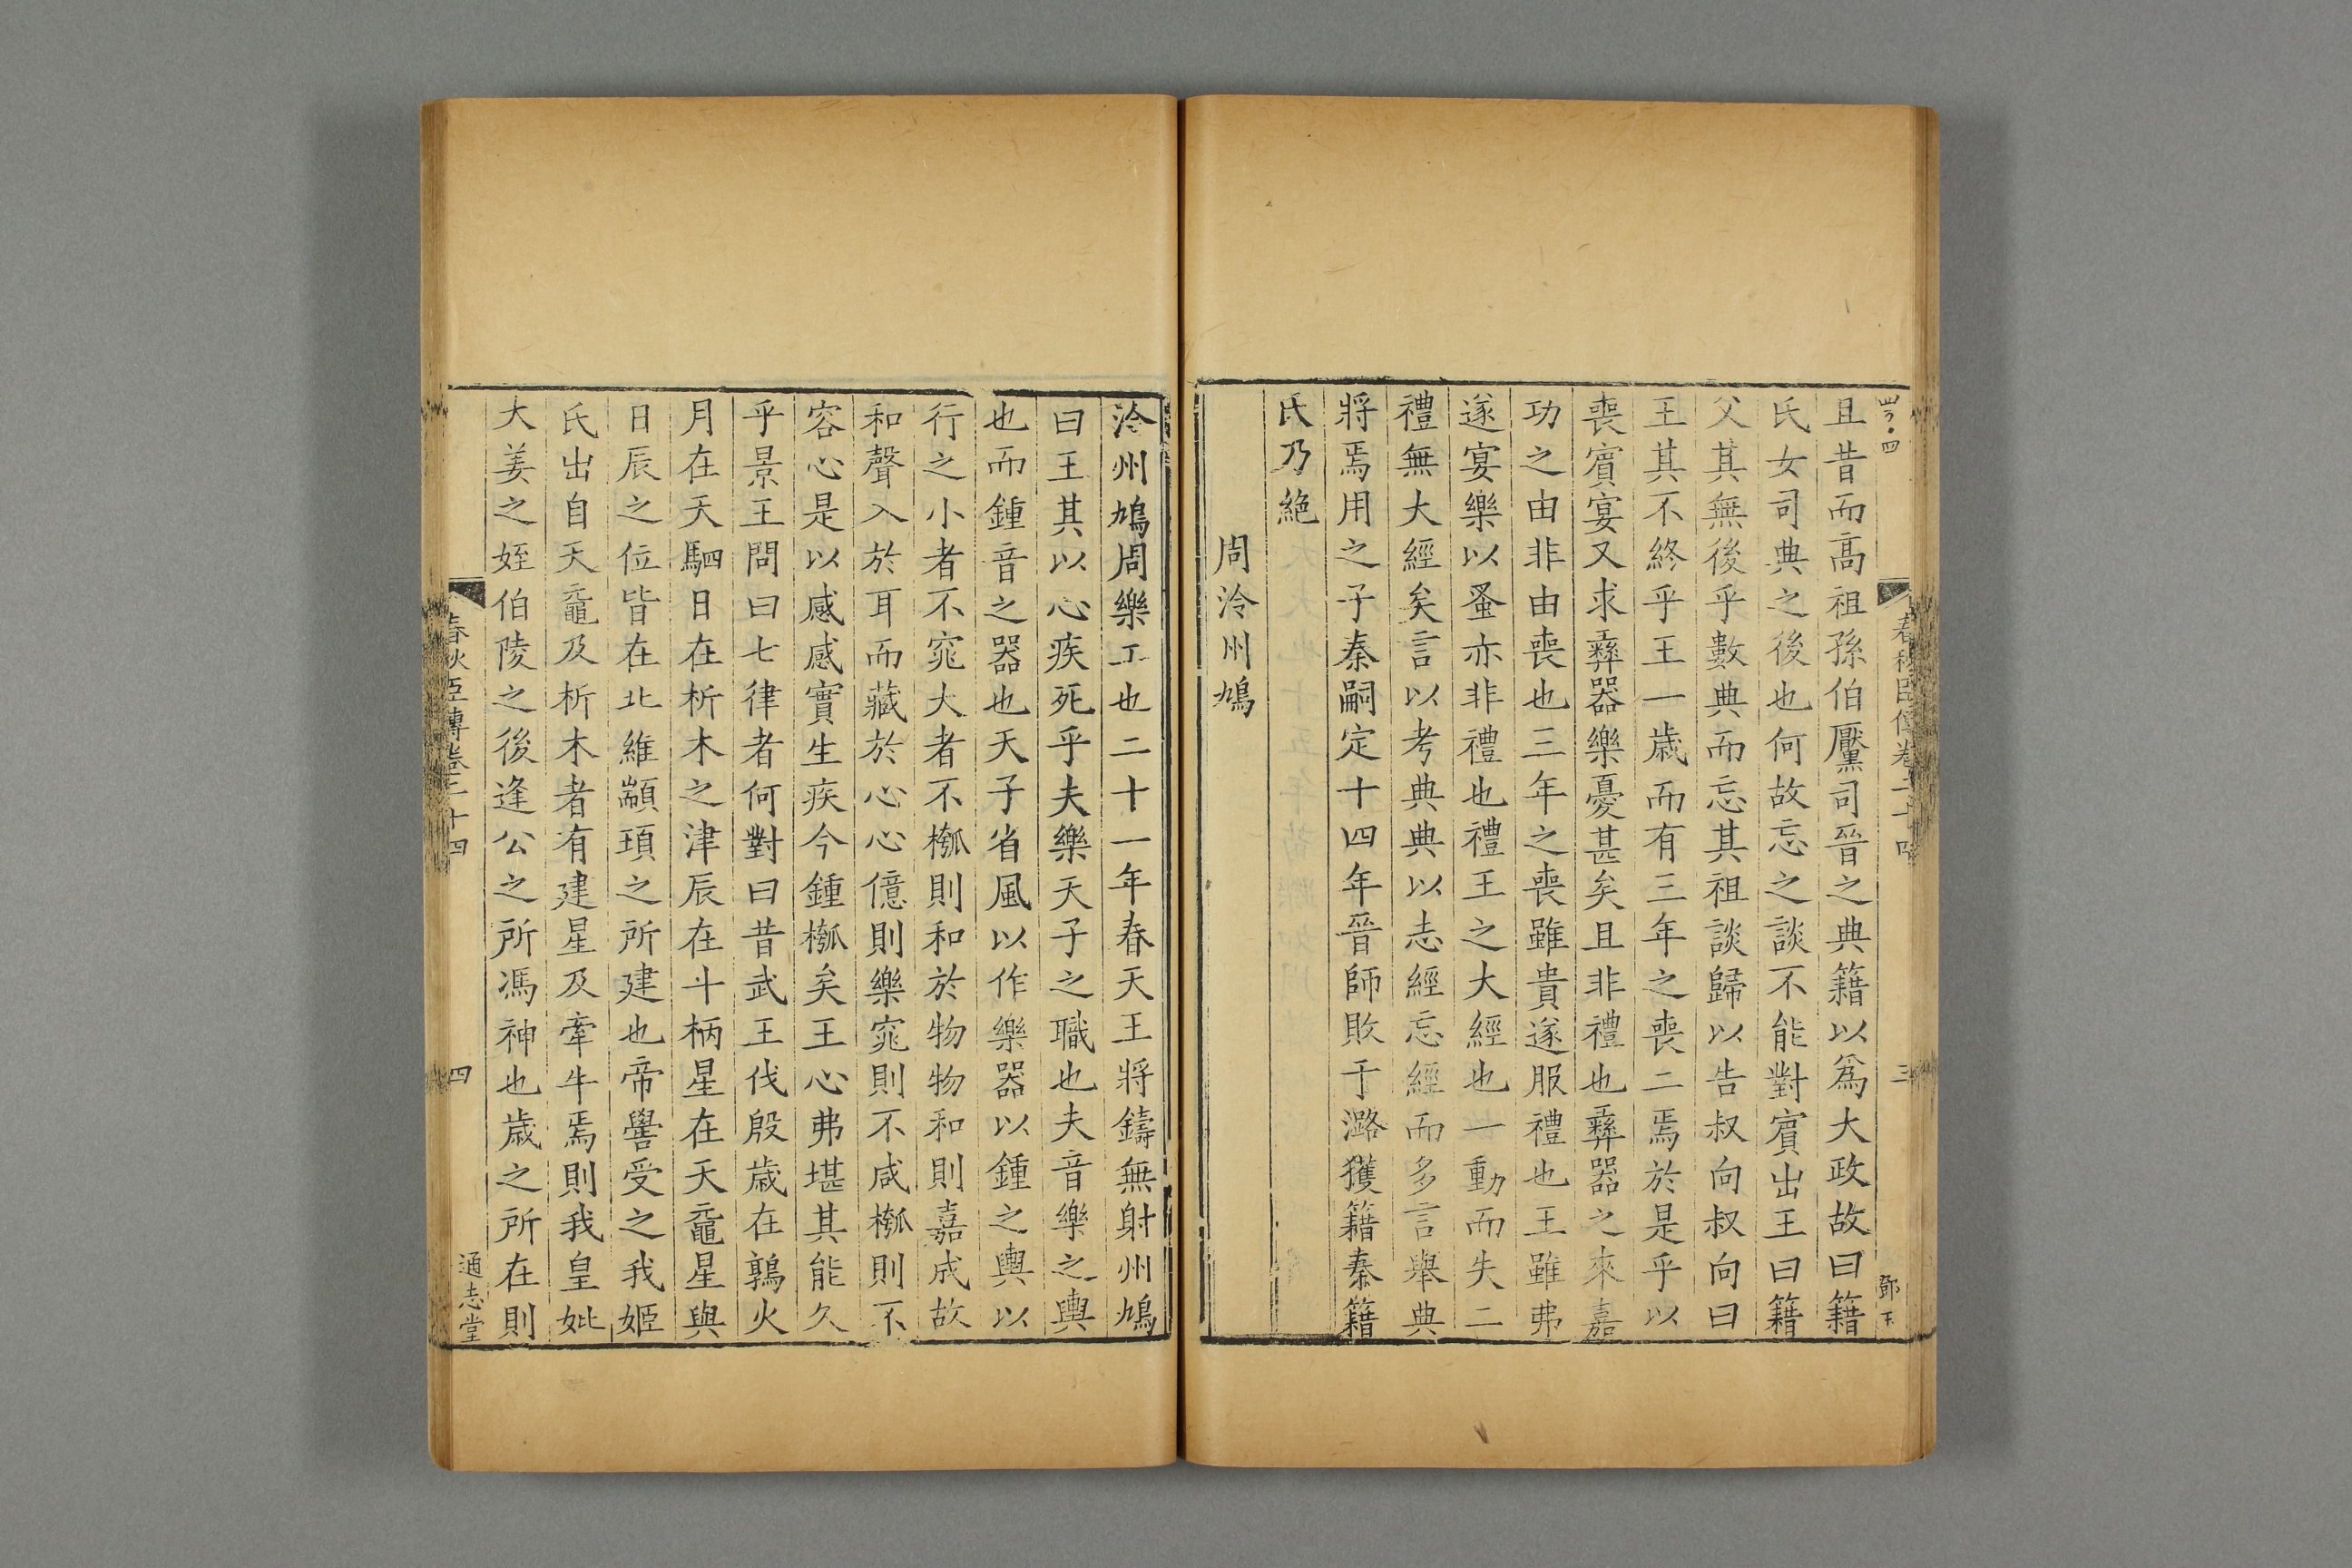 且昔而高祖孫伯黶司晉之典籍以爲大政故曰籍
氏女司典之後也何故忘之談不能對賓出王曰籍
父其無後乎數典而忘其祖談歸以告叔向叔向曰
王其不終乎王一歳而有三年之喪二焉於是乎以
喪賓宴又求彞器樂憂甚矣且非禮也彞器之來嘉
功之由非由喪也三年之喪雖貴遂服禮也王雖弗
遂宴樂以蚤亦非禮也禮王之大經也一動而失二
禮無大經矣言以考典典以志經忘經而多言舉典
將焉用之子秦嗣定十四年晉師敗于潞獲籍秦籍
氏乃絕
周泠州鳩
泠州鳩周樂工也二十一年春天王將鑄無射州鳩
曰王其以心疾死乎夫樂天子之職也夫音樂之輿
也而鍾音之器也天子省風以作樂器以鍾之輿以
行之小者不窕大者不槬則和於物物和則嘉成故
和聲入於耳而藏於心心億則樂窕則不咸槬則不
容心是以感感實生疾今鍾槬矣王心弗堪其能久
乎景王問曰七律者何對曰昔武王伐殷歳在鶉火
月在天駟日在析木之津辰在斗柄星在天黿星與
日辰之位皆在北維顓頊之所建也帝嚳受之我姬
氏出自天黿及析木者有建星及牽牛焉則我皇妣
大姜之姪伯陵之後逢公之所馮神也歳之所在則
春秋臣傳卷二十四
三
四
通志堂